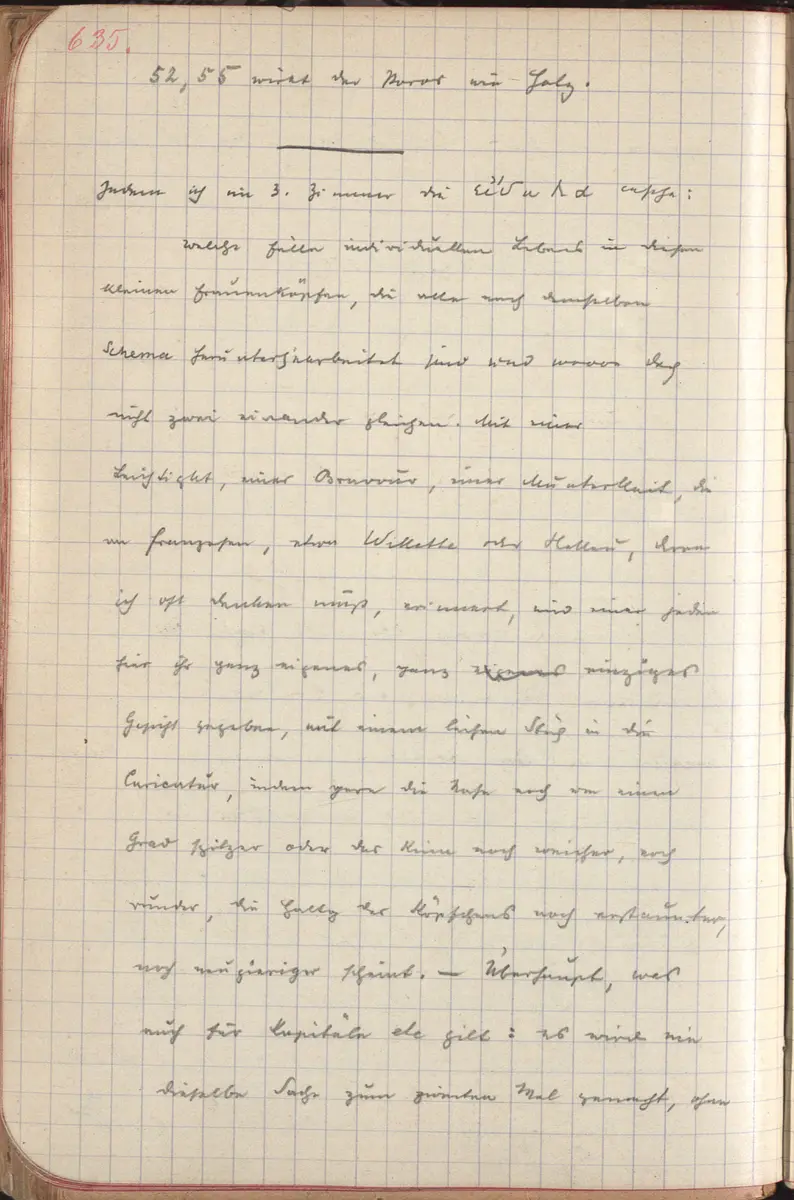 635.
52, 55 wirkt der Poros wie Holz.
Indem ich im 3. Zimmer die εἴδωλα ansehe:
welche Fülle individuellen Lebens in diesen
kleinen Frauenköpfen, die alle nach demselben
Schema heruntergearbeitet sind und wovon doch
nicht zwei einander gleichen. Mit einer
Leichtigkeit, einer Bravour, einer Munterkeit, die
an Franzosen, etwa Willette oder Helleu, daran
ich oft denken muß, erinnert, wird einer jeden
hier ihr ganz eigenes, ganz eigenes einziges
Gesicht gegeben, mit einem leisen Stich in die
Caricatur, indem gern die Nase noch um einen
Grad spitzer oder das Kinn noch weicher, noch
runder, die Haltg des Köpfchens noch erstaunter,
noch neugieriger scheint. — Überhaupt, was
auch für Kapitäle etc gilt: es wird nie
dieselbe Sache zum zweiten Mal gemacht, ohne